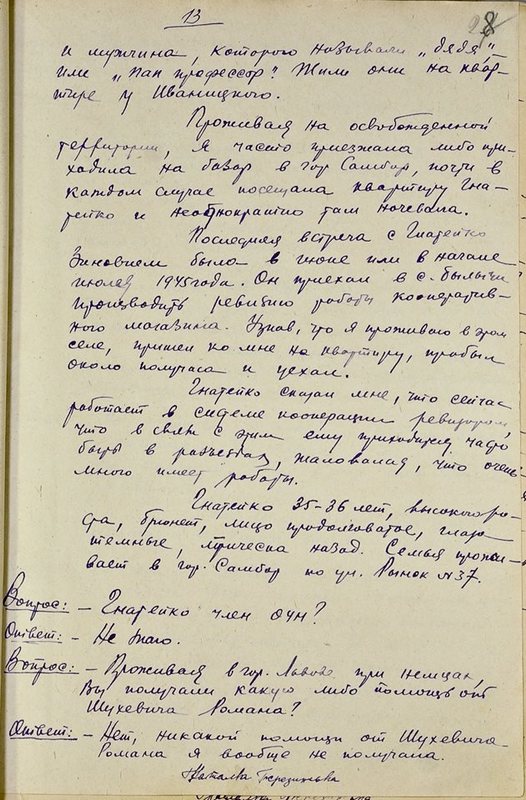 13
28
и мужчина, которого называли „дядя"
или „Пан профессор". Жили они на квар-
тире у Иваницкого.
Проживая на освобожденной
территории, я часто приезжала либо при-
ходила на базар в гор Самбор, почти в
каждом случае посещала квартиру Гна-
тейко и неоднократно там ночевала.
Последняя встреча с Гнатейко
Зиновием была в июне или в начале
июля 1945 года. Он приехал в с.
производить ревизию работы кооператив-
ного магазина. Узнав, что я проживаю в этом
селе, пришел ко мне на квартиру, пробыл
около получаса и уехал.
Гнатейко сказал мне, что сейчас
работает в системе кооперации ревизором,
что в связи с этим ему приходится часто
быть в разъездах, жаловался, что очень
много имеет работы.
Гнатейко 35-36 лет, высокого ро-
ста, брюнет, лицо продолговатое, глаза
темные, прическа назад. Семья прожи-
вает в гор. Самбор по ул. Рынок №37.
Вопрос: - Гнатейко член ОУН?
Ответ: - Не знаю.
Вопрос: - Проживая в гор. Львове при немцах,
Вы получали какую либо помощь от
Шухевича Романа?
Ответ: - Нет, никакой помощи от Шухевича
Романа я вообще не получала.
Наталия Березинська